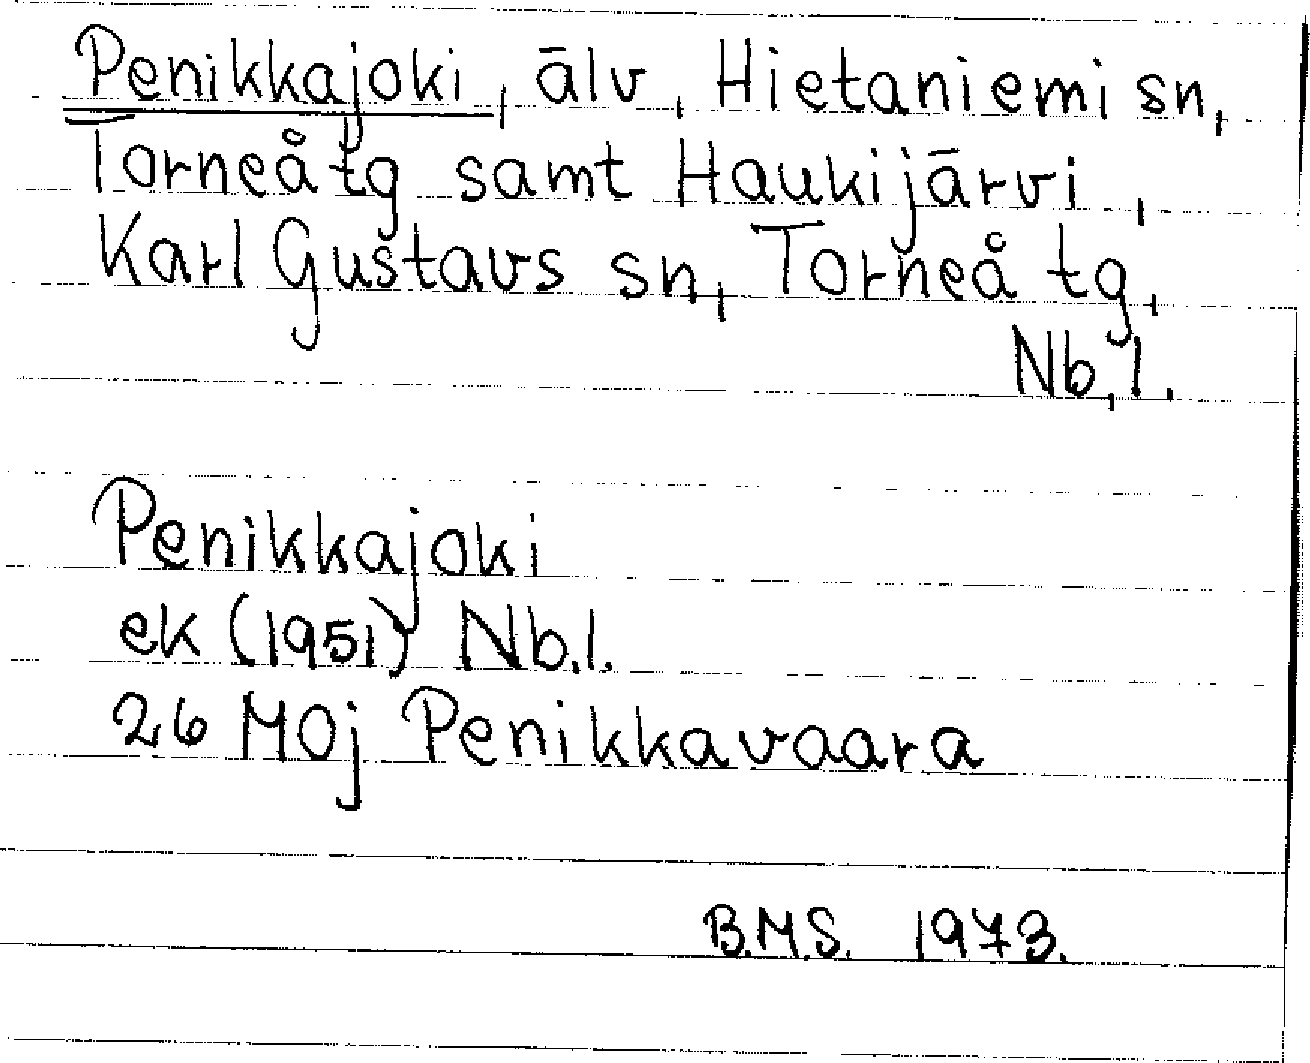 Penikkajoki, älv, Hietaniemi sn,
Torneå tg samt Haukijärvi,
Karl Gustavs sn, Torneå tg,
Nb,l.
Penikkajoki
ek (1951) Nb.l.
26 MOj Penikkavaara
B.M.S. 1973.